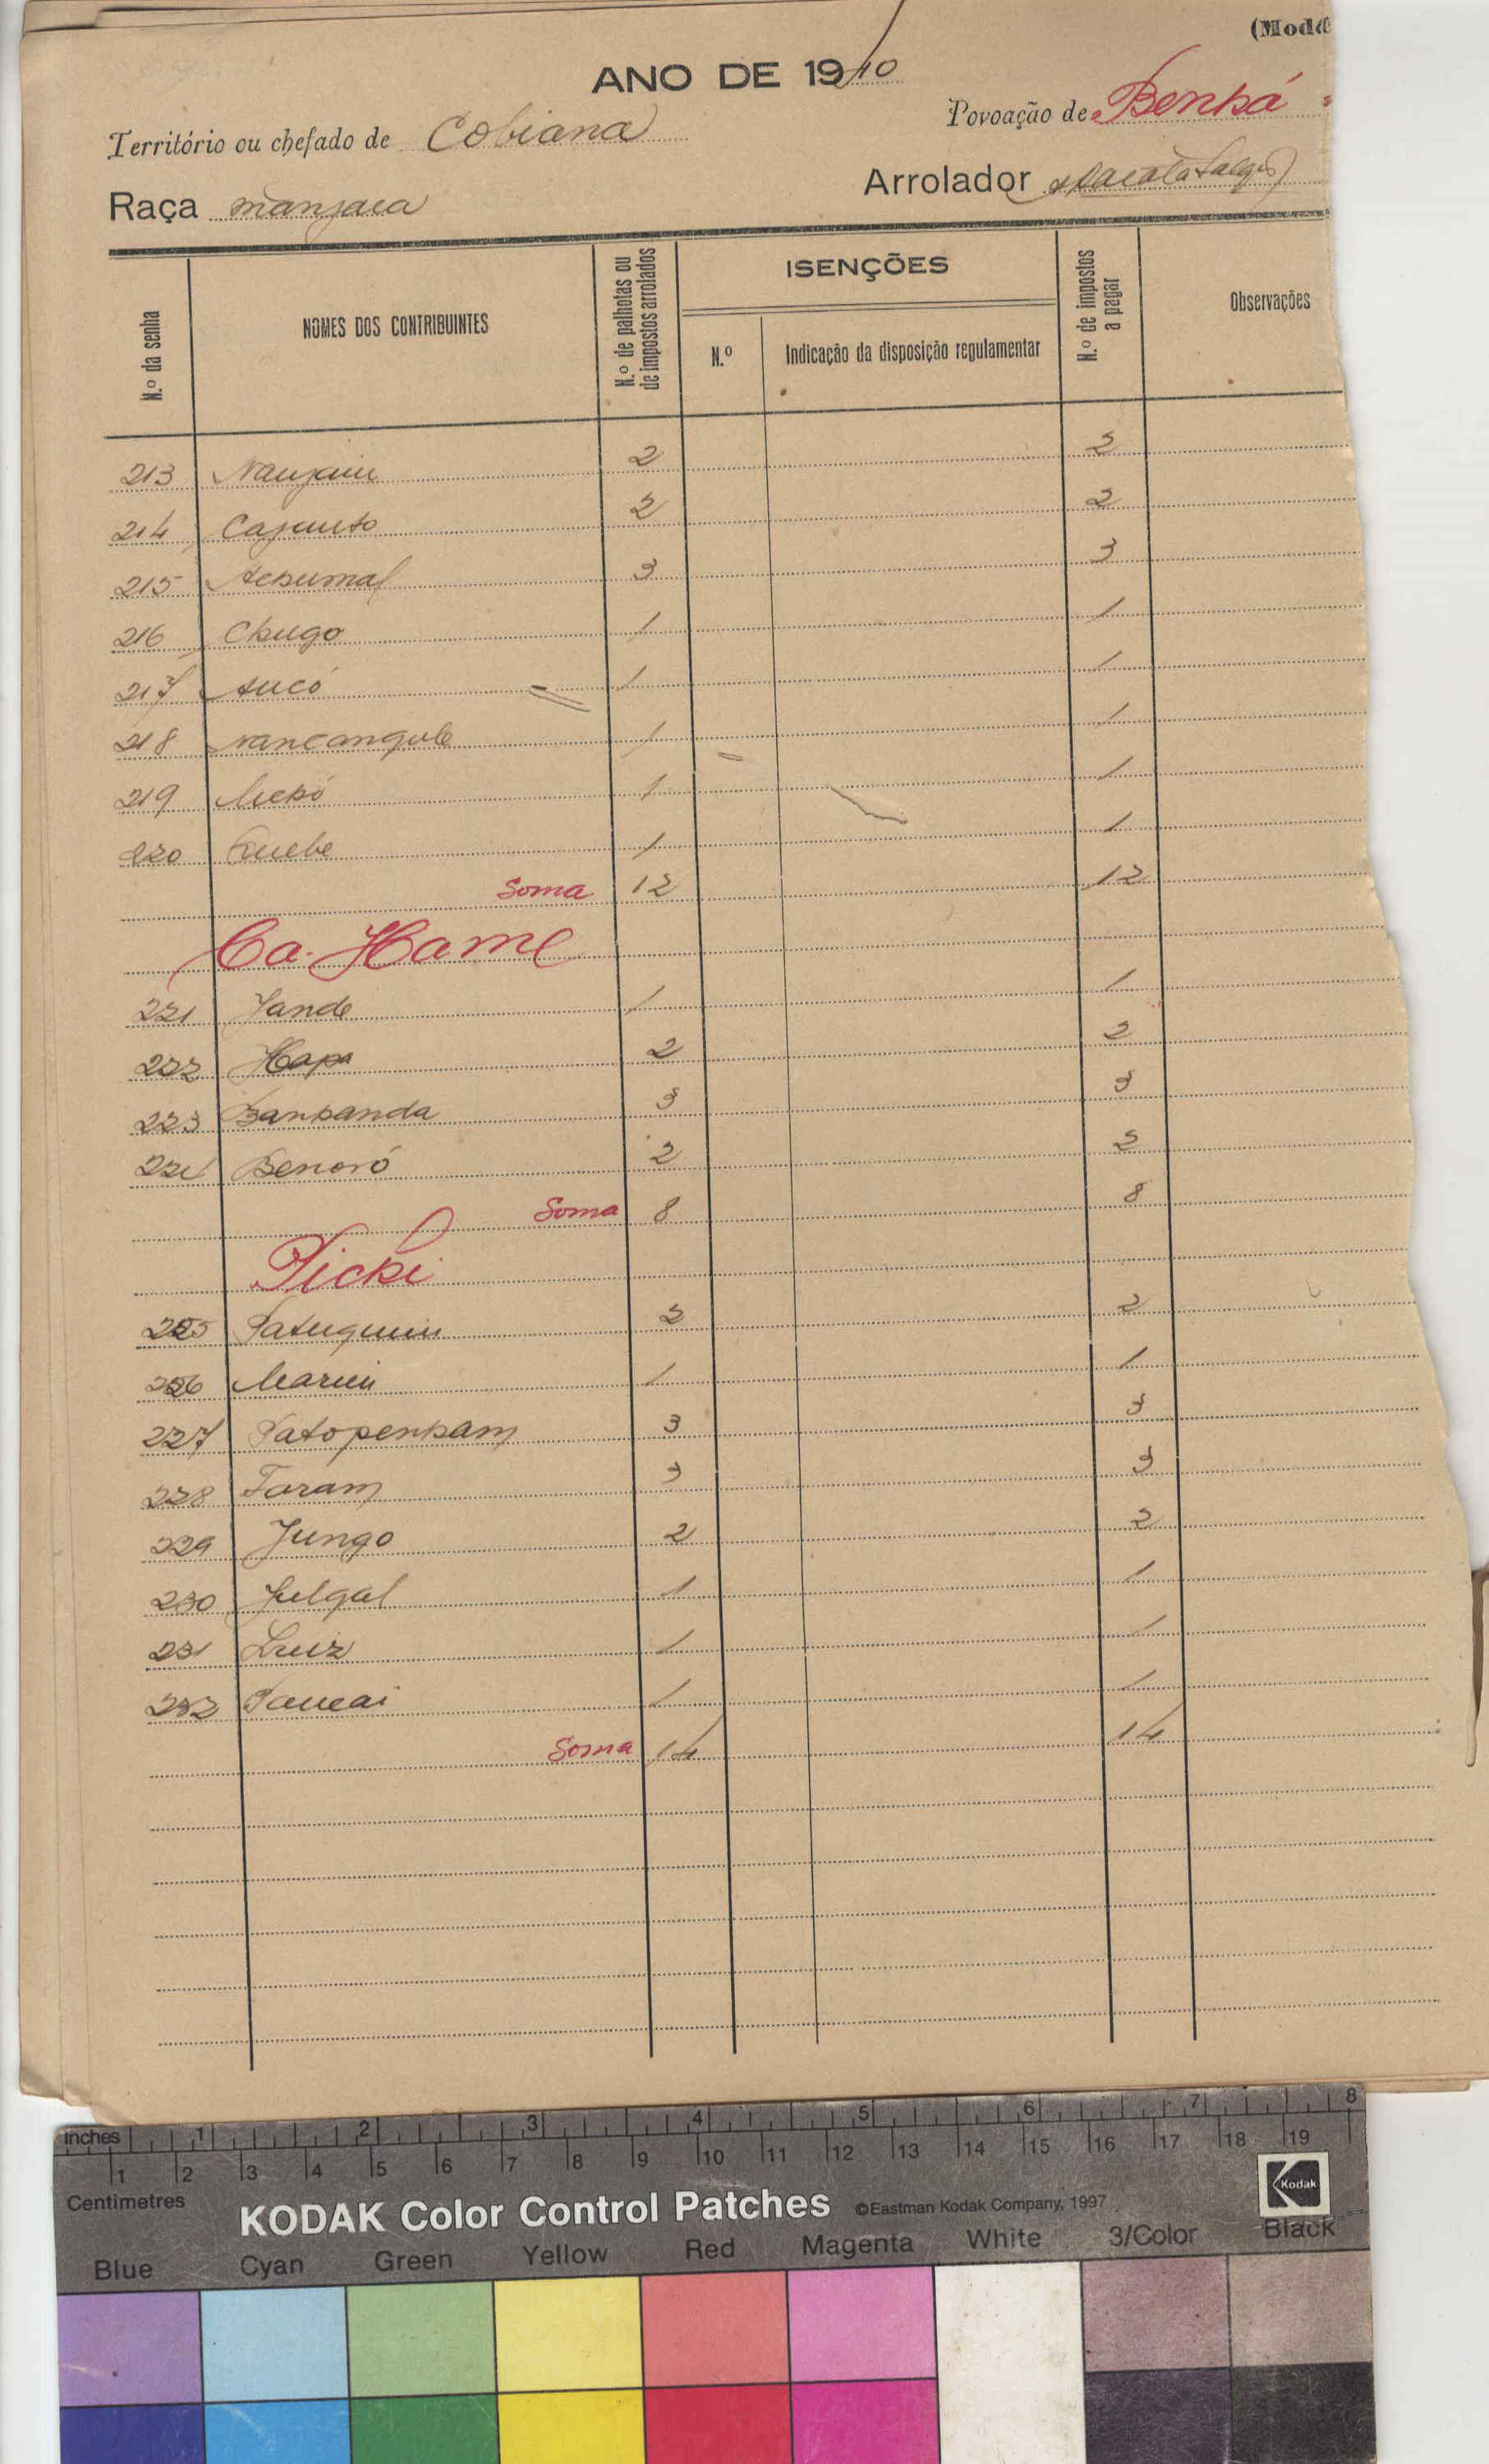 (Mod
ANO DE 1940
Povoação de Benká
Território ou chefado de Cobiana
Arrolador
Raça manjaca
N.º da senha
NOMES DOS CONTRIBUINTES
N.º de palhotas ou de impostos arrolados
ISENÇÕES
N.º
Indicação da disposição regulamentar
N.º de impostos a pagar
Observações
213 2 2
214 Cajanto 2 2
215 3 3
216 Chugo 1 1
217 1 1
218 Nancangule 1 1
219 1 1
220 Quebe 1 1
Soma 12 12
Ca-Hame
221 Jande 1 1
222 Hapa 2 2
223 Bankanda 3 3
224 Benoró 2 2
Soma 8 8
Picki
225 2 2
226 1 1
227 Patopenkam 3 3
228 Faram 3 3
229 Jungo 2 2
230 Julgal 1 1
231 Luiz 1 1
232 1 1
Soma 14 14
inches 1 2 3 4 5 6 7 8
1 2 3 4 5 6 7 8 9 10 11 12 13 14 15 16 17 18 19
Centimetres
KODAK Color Control Patches ©Eastman Kodak Company, 1997
Kodak
Blue Cyan Green Yellow Red Magenta White 3/Color Black